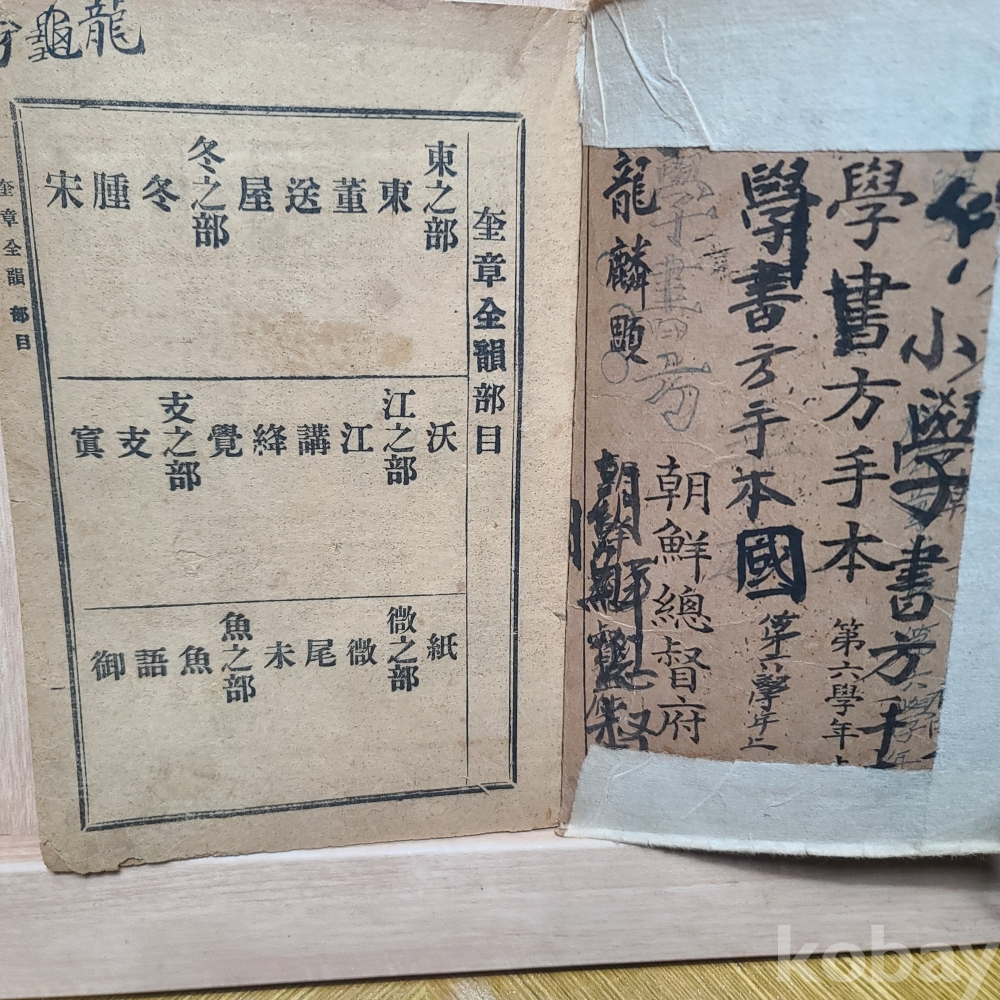 小學書方手
學書方手本
第六學年上
學書方手本國
第六學年上
朝鮮總督府
龍麟顯
朝鮮總督
龍龜
奎章全韻部目
東之部 東 董 送 屋 冬之部 冬 腫 宋
沃 江之部 江 講 絳 覺 支之部 支 寘
紙 微之部 微 尾 未 魚之部 魚 語 御
奎章全韻 部目
kobay